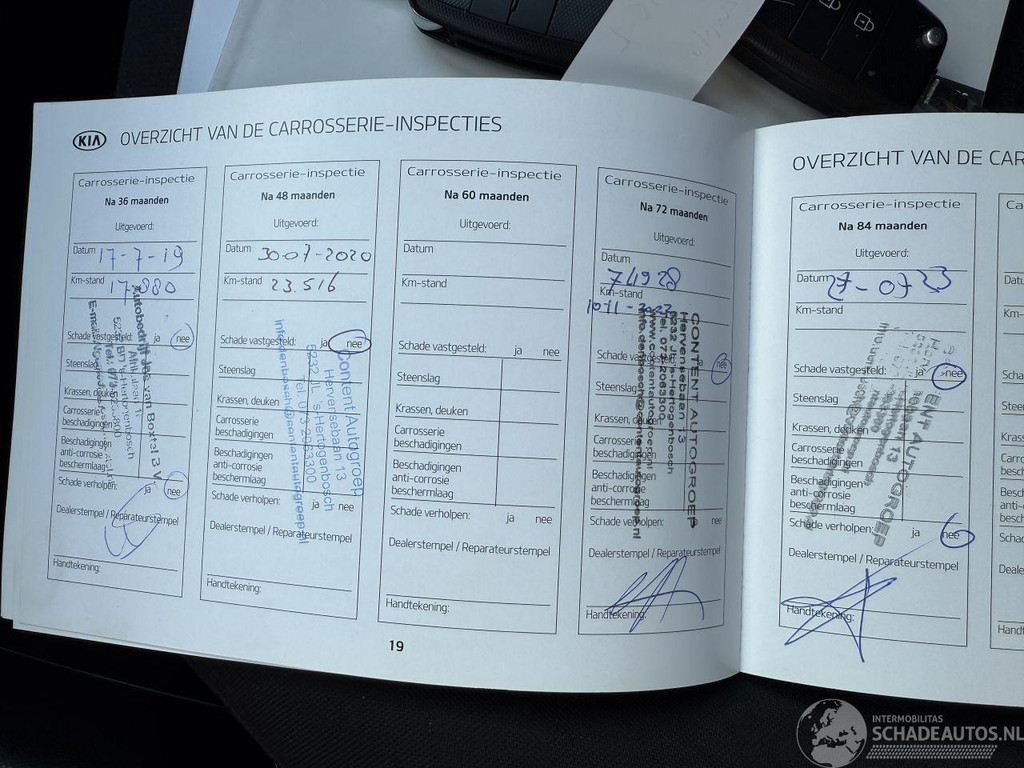 KIA OVERZICHT VAN DE CARROSSERIE-INSPECTIES
Carrosserie-inspectie
Na 36 maanden
Uitgevoerd:
Datum 17-7-19
Km-stand 17.880
Schade vastgesteld: ja nee
Steenslag
Krassen, deuken
Carrosserie
beschadigingen
Beschadigingen
anti-corrosie
beschermlaag
Schade verholpen: ja nee
Dealerstempel / Reparateurstempel
Handtekening:
Carrosserie-inspectie
Na 48 maanden
Uitgevoerd:
Datum 30-07-2020
Km-stand 23.516
Schade vastgesteld: ja nee
Steenslag
Krassen, deuken
Carrosserie
beschadigingen
Beschadigingen
anti-corrosie
beschermlaag
Schade verholpen: ja nee
Dealerstempel / Reparateurstempel
Handtekening:
Content Autogroep
Hervensebaan 13
5232 JL 's-Hertogenbosch
Carrosserie-inspectie
Na 60 maanden
Uitgevoerd:
Datum
Km-stand
Schade vastgesteld: ja nee
Steenslag
Krassen, deuken
Carrosserie
beschadigingen
Beschadigingen
anti-corrosie
beschermlaag
Schade verholpen: ja nee
Dealerstempel / Reparateurstempel
Handtekening:
Carrosserie-inspectie
Na 72 maanden
Uitgevoerd:
Datum
Km-stand
Schade vastgesteld: ja nee
Steenslag
Krassen, deuken
Carrosserie
beschadigingen
Beschadigingen
anti-corrosie
beschermlaag
Schade verholpen: ja nee
Dealerstempel / Reparateurstempel
Handtekening:
CONTENT AUTOGROEP
Hervensebaan 13
5232 JL 's-Hertogenbosch
19
OVERZICHT VAN DE CAR
Carrosserie-inspectie
Na 84 maanden
Uitgevoerd:
Datum 27-07-23
Km-stand
Schade vastgesteld: ja nee
Steenslag
Krassen, deuken
Carrosserie
beschadigingen
Beschadigingen
anti-corrosie
beschermlaag
Schade verholpen: ja nee
Dealerstempel / Reparateurstempel
Handtekening:
INTERMOBILITAS
SCHADEAUTOS.NL